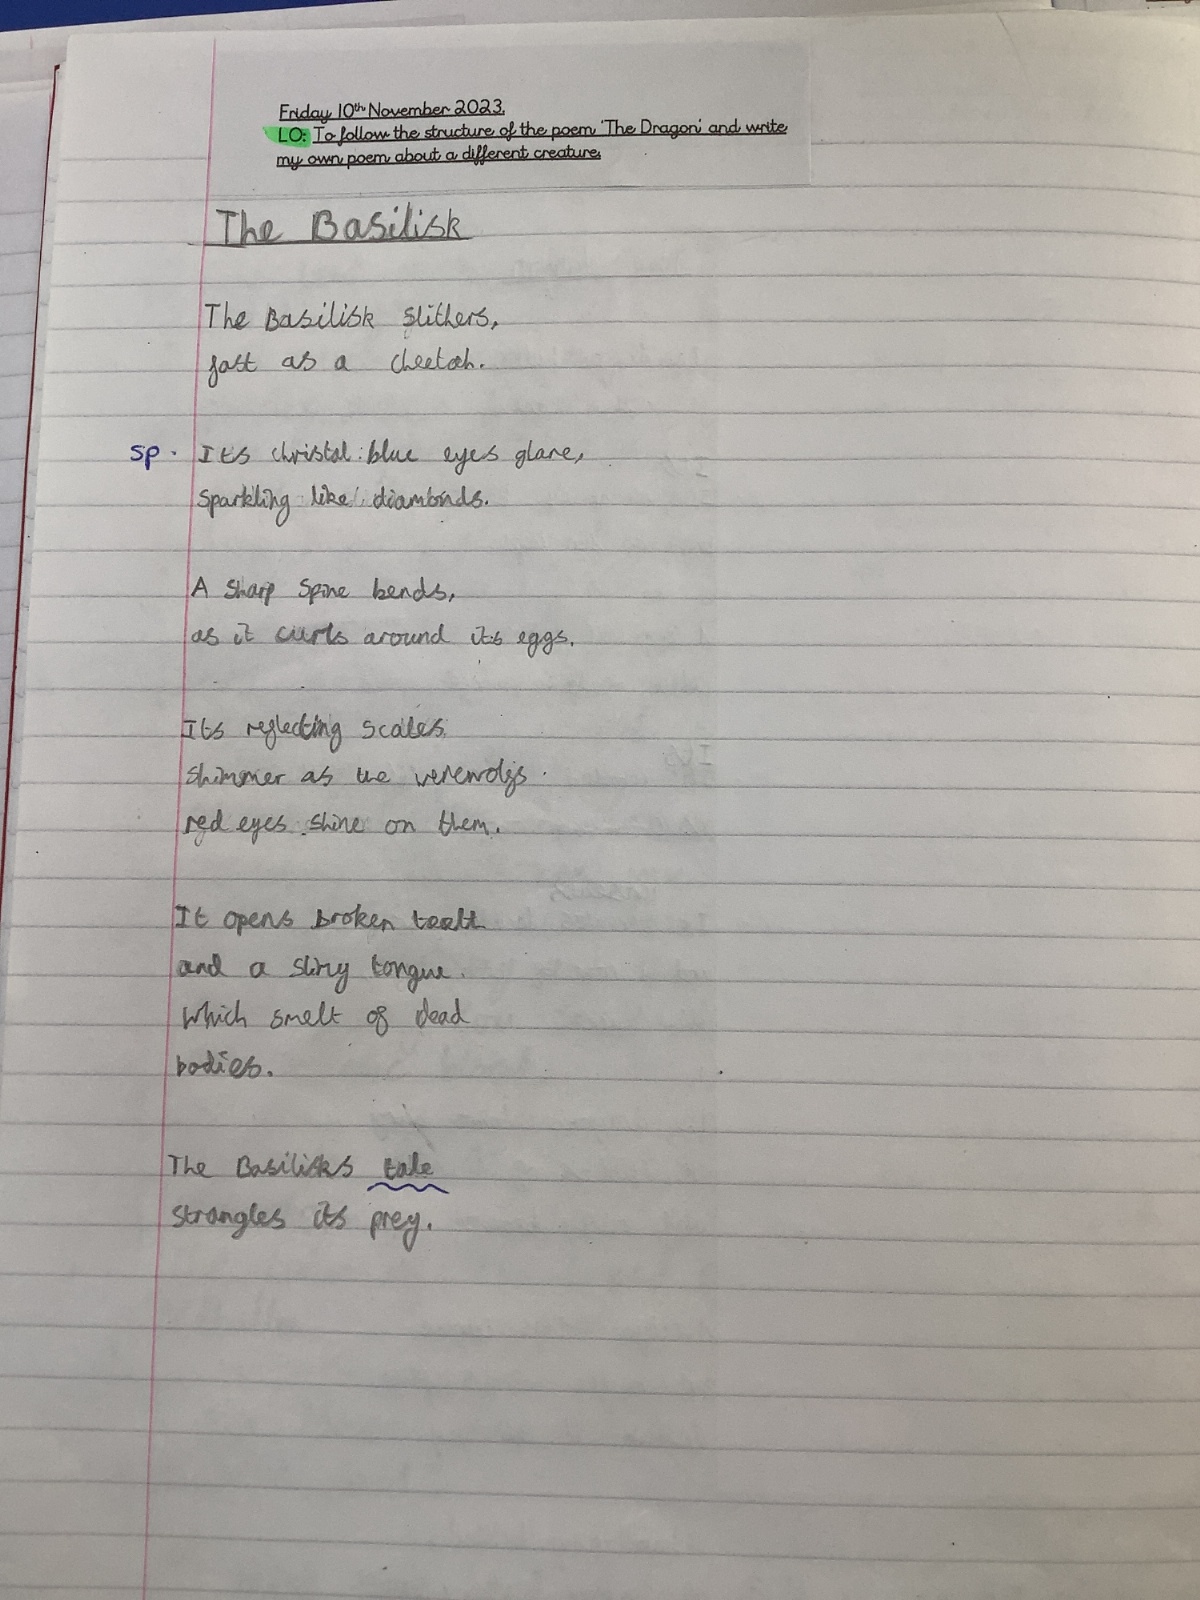 Friday 10th November 2023.
LO: To follow the structure of the poem 'The Dragon' and write
my own poem about a different creature.
The Basilisk
The Basilisk slithers,
fast as a cheetah.
sp. Its christal blue eyes glare,
sparkling like diamonds.
A sharp spine bends,
as it curls around its eggs.
Its reflecting scales
shimmer as the werewolfs
red eyes shine on them.
It opens broken teeth
and a slimy tongue.
Which smelt of dead
bodies.
The Basilisks tale
strangles its prey.